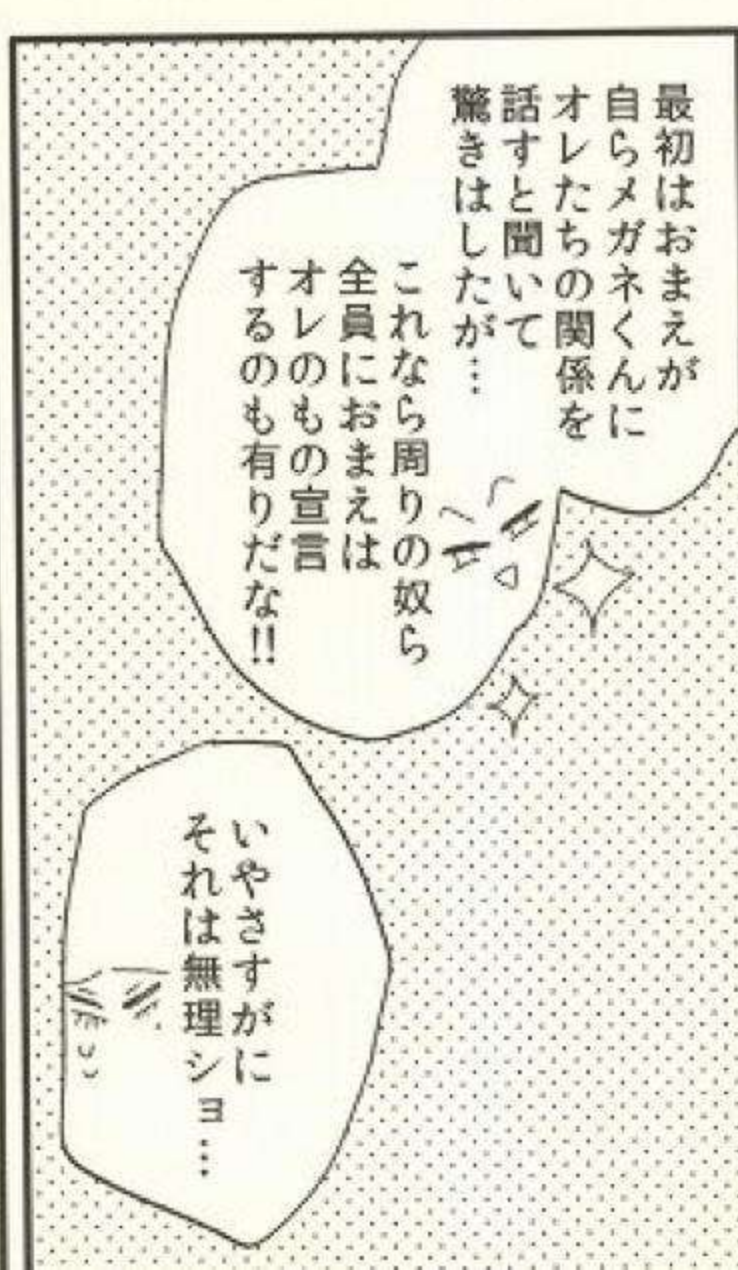 最初はおまえが
自らメガネくんに
オレたちの関係を
話すと聞いて
驚きはしたが…
これなら周りの奴ら
全員におまえは
オレのもの宣言
するのも有りだな!!
いやさすがに
それは無理ショ…